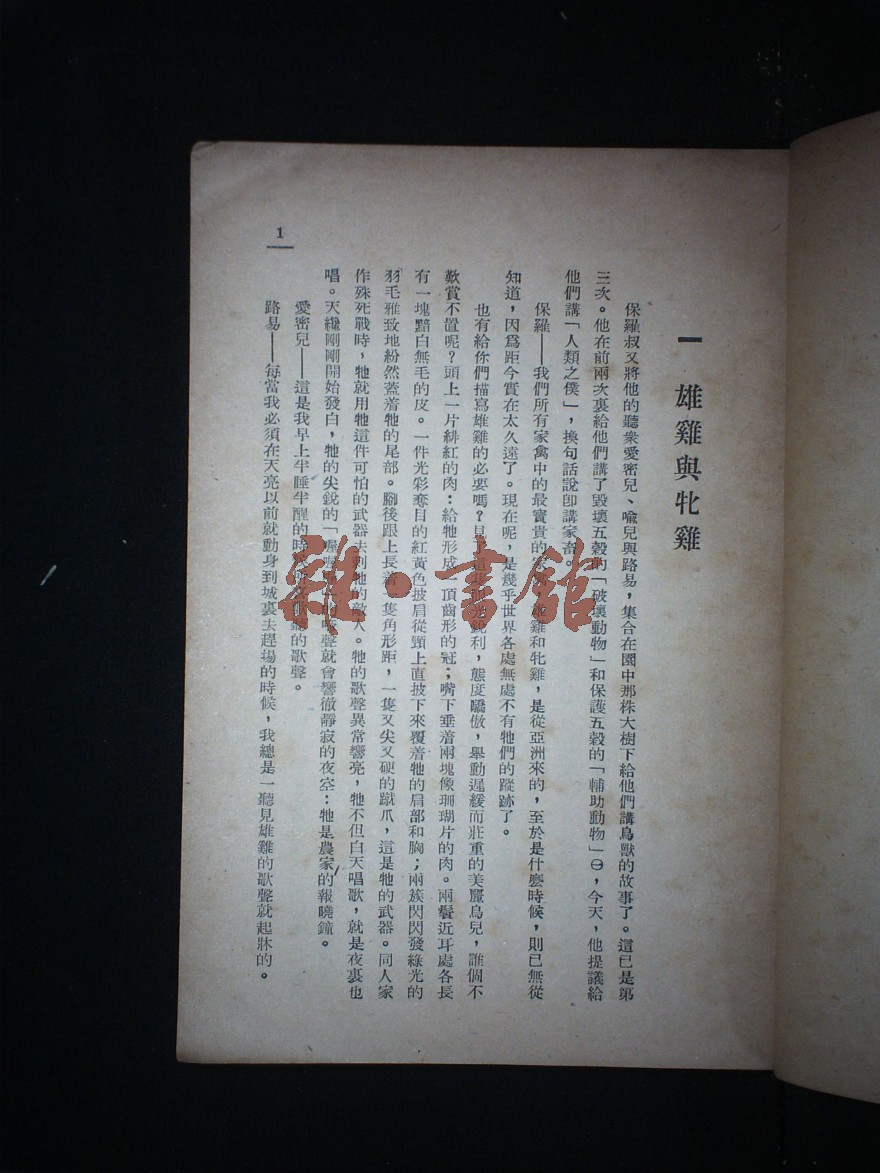 一 雄雞與牝雞
保羅叔又將他的聽衆愛密兒、喩兒與路易，集合在園中那株大樹下給他們講鳥獸的故事了。這已是第
三次。他在前兩次裏給他們講了毀壞五穀的「破壞動物」和保護五穀的「輔助動物」㊀，今天，他提議給
他們講「人類之僕」，換句話說卽講家畜。
保羅——我們所有家禽中的最寶貴的家 雄雞和牝雞，是從亞洲來的，至於是什麼時候，則已無從
知道，因爲距今實在太久遠了。現在呢，是幾乎世界各處無處不有牠們的蹤跡了。
也有給你們描寫雄雞的必要嗎？見了這 銳利，態度驕傲，舉動遲緩而莊重的美麗鳥兒，誰個不
歎賞不置呢？頭上一片緋紅的肉：給牠形成一頂齒形的冠；嘴下垂着兩塊像珊瑚片的肉。兩鬢近耳處各長
有一塊黯白無毛的皮。一件光彩奪目的紅黃色披肩從頸上直披下來覆着牠的肩部和胸；兩簇閃閃發綠光的
羽毛雅致地紛然蓋着牠的尾部。腳後跟上長着一隻角形距，一隻又尖又硬的蹴爪，這是牠的武器。同人家
作殊死戰時，牠就用牠這件可怕的武器去刺牠的敵人。牠的歌聲異常響亮，牠不但白天唱歌，就是夜裏也
唱。天纔剛剛開始發白，牠的尖銳的「喔 的鳴聲就會響徹靜寂的夜空：牠是農家的報曉鐘。
愛密兒——這是我早上半睡半醒的時候 聽的歌聲。
路易——每當我必須在天亮以前就動身到城裏去趕場的時候，我總是一聽見雄雞的歌聲就起牀的。
1
雜·書館